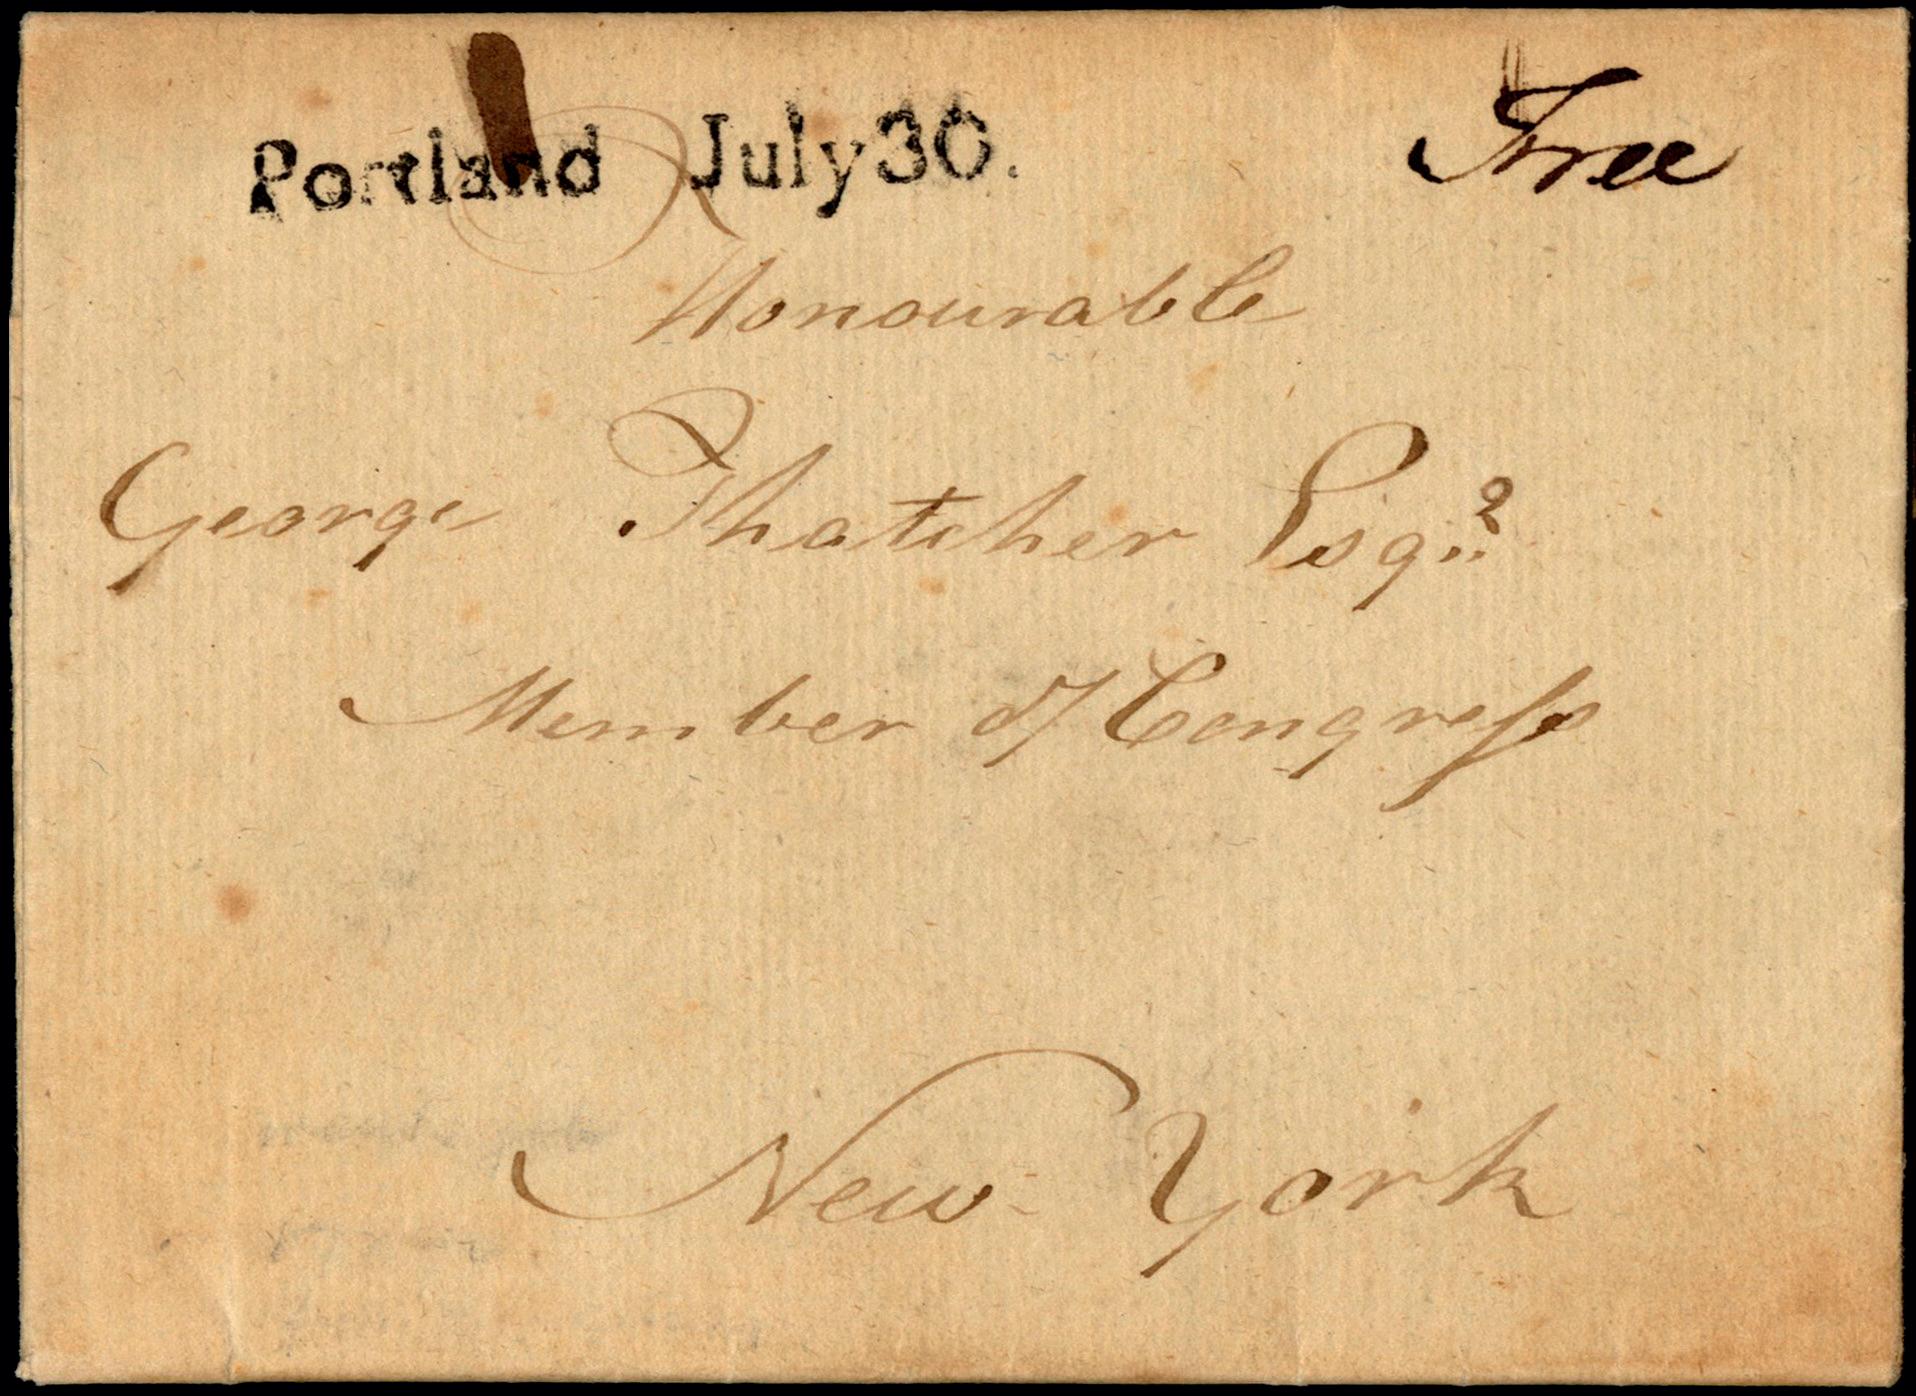 Portland July 30. Free
Honourable
George Thatcher Esqr.
Member of Congreſs
New-York